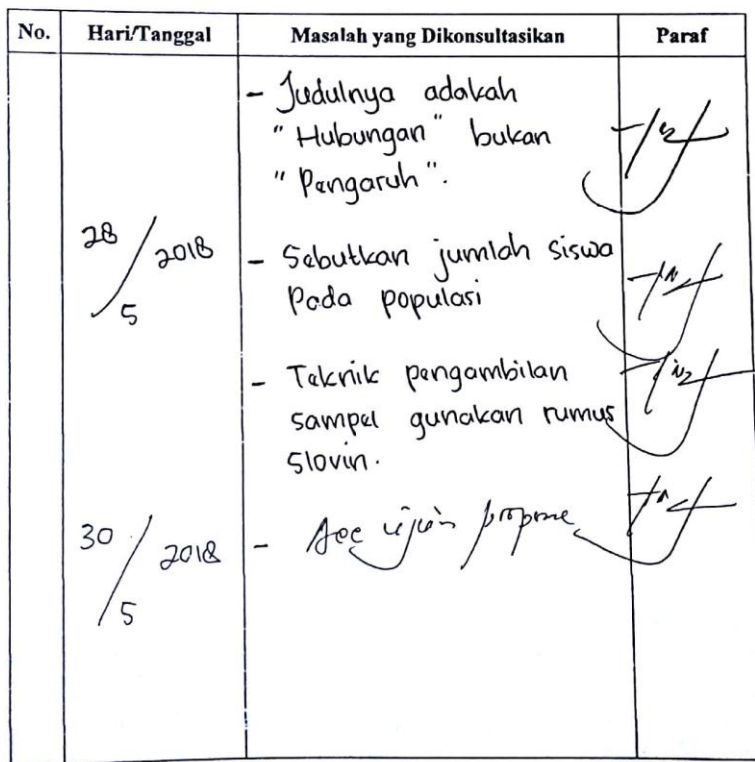 No. Hari/Tanggal Masalah yang Dikonsultasikan Paraf
- Judulnya adakah
"Hubungan" bukan
"Pengaruh".
28/5 2018
- Sebutkan jumlah siswa
Pada populasi
- Teknik pengambilan
sampel gunakan rumus
Slovin.
30/5 2018
- Acc ujian